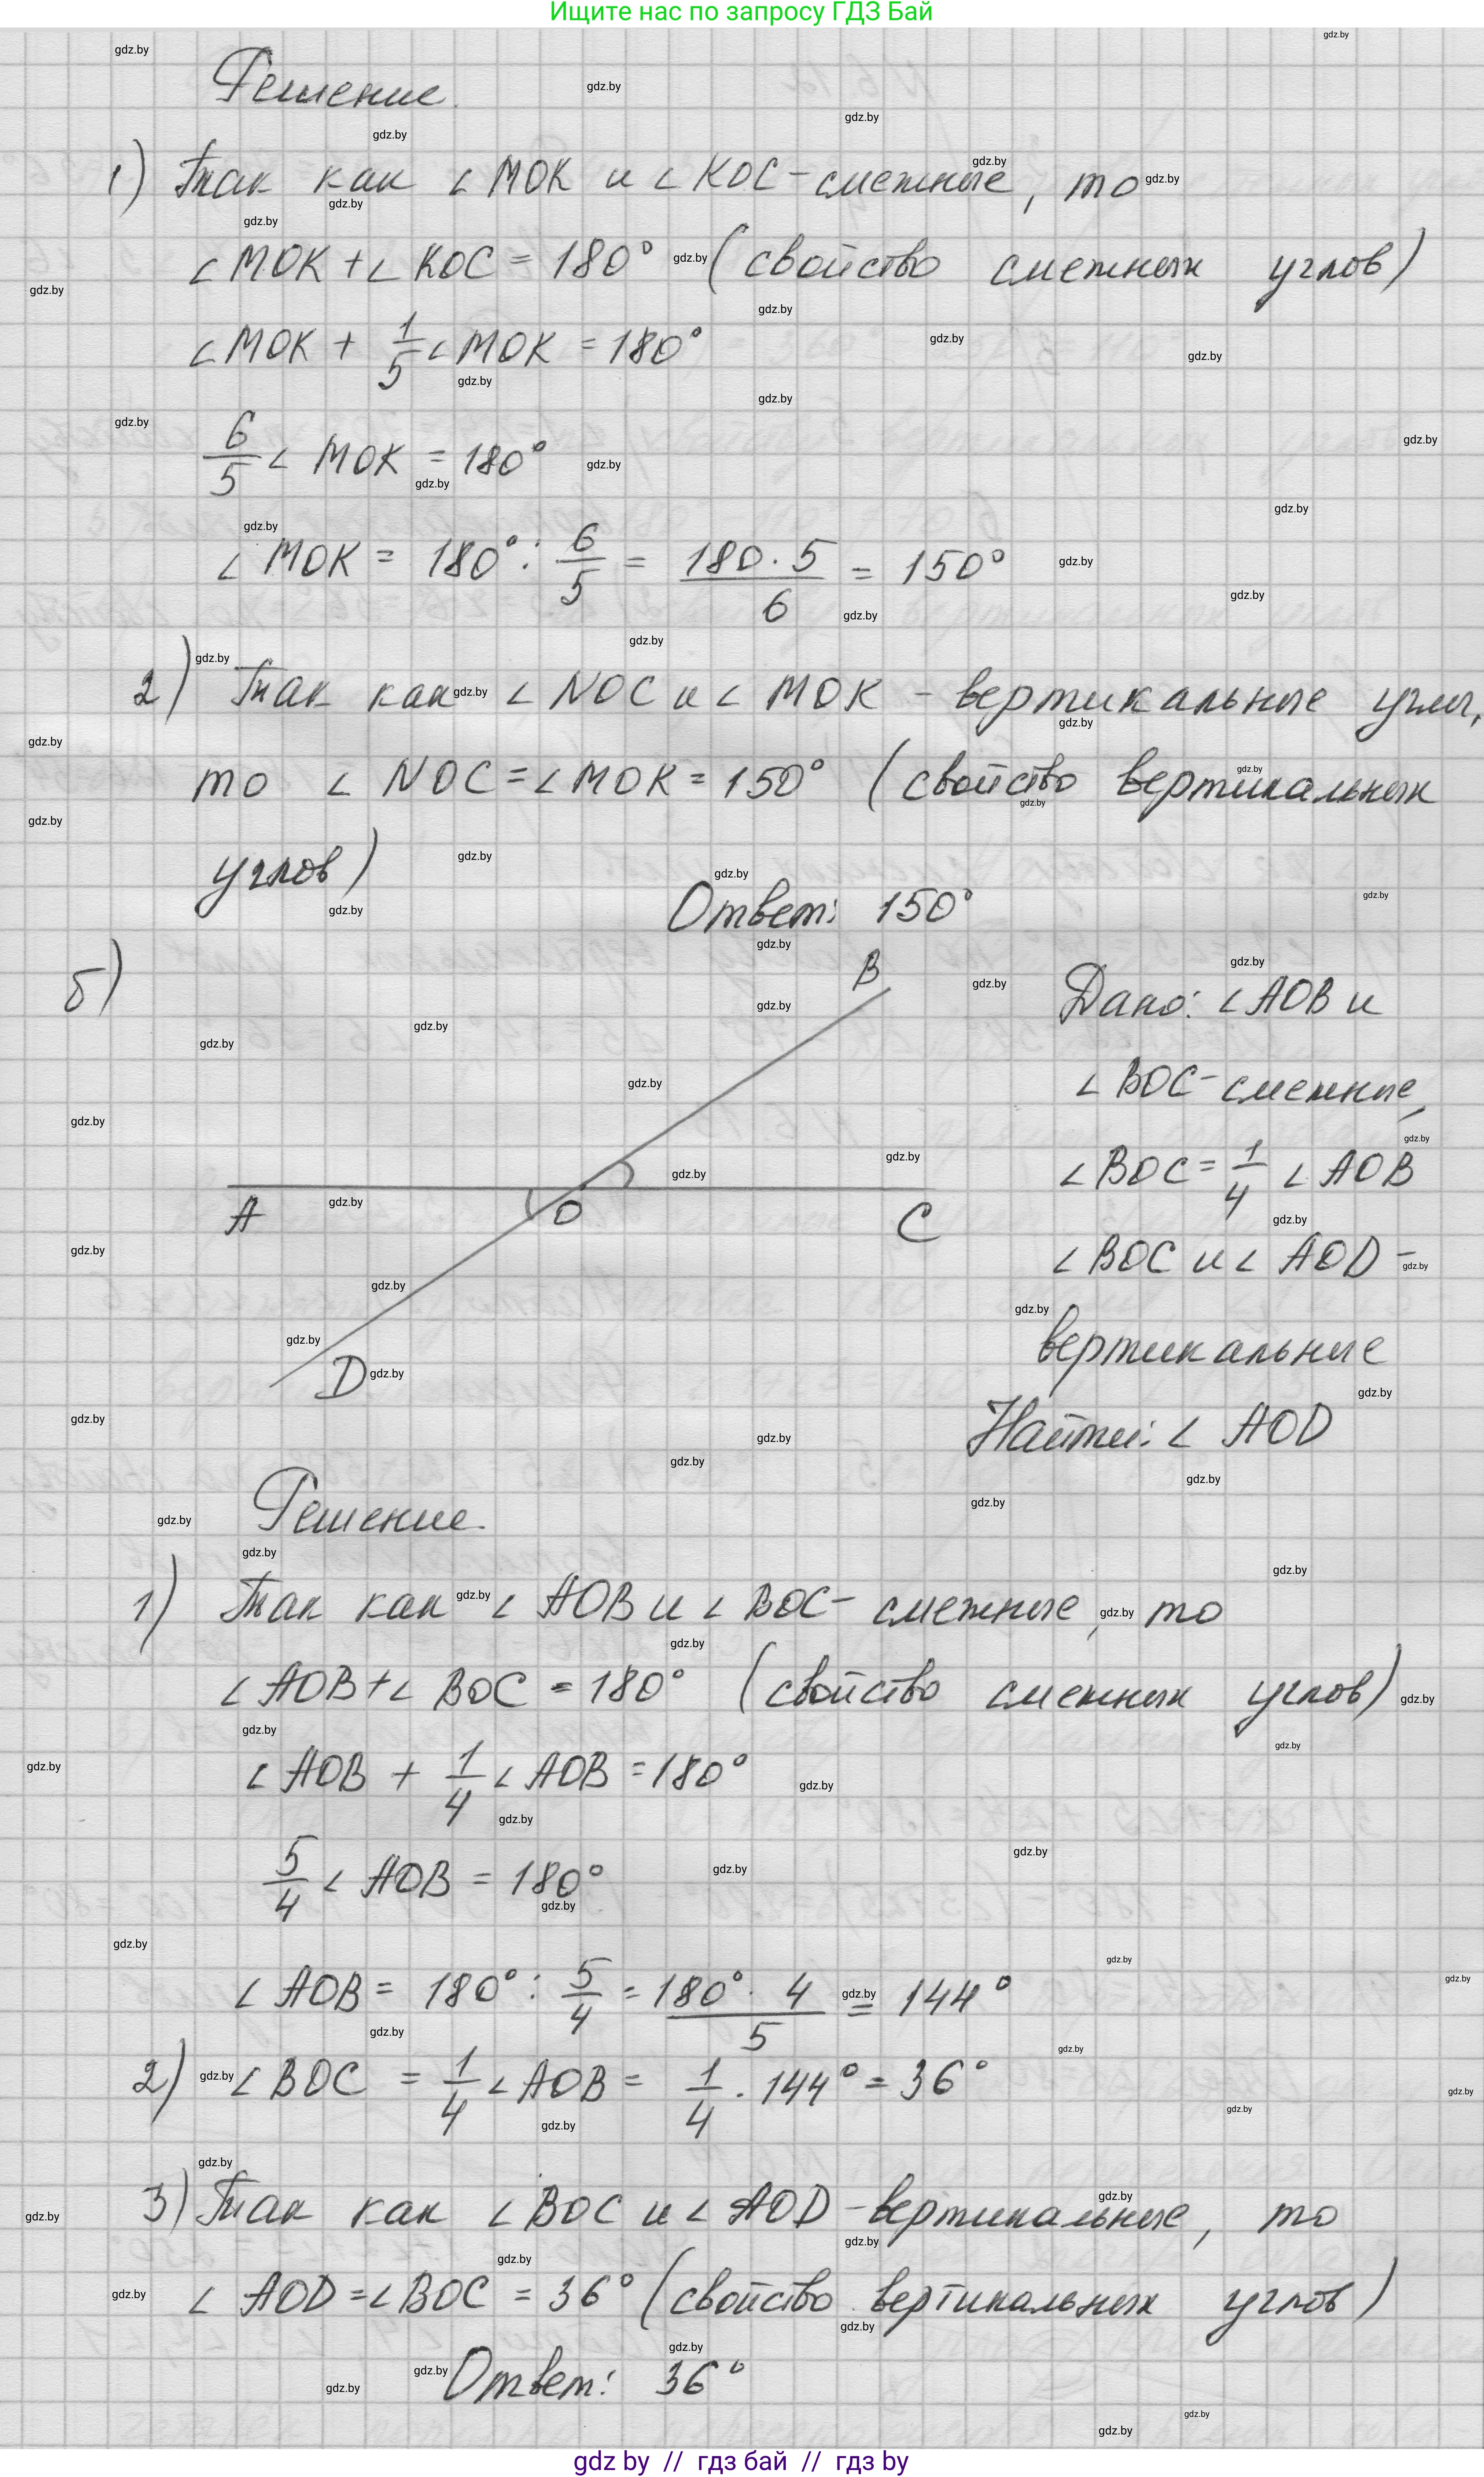 Ищите нас по запросу ГДЗ Бай
Решение.
1) Так как ∠МОК и ∠КОС - смежные, то
∠МОК + ∠КОС = 180° (свойство смежных углов)
∠МОК + 1/5 ∠МОК = 180°
6/5 ∠МОК = 180°
∠МОК = 180° : 6/5 = 180 · 5 / 6 = 150°
2) Так как ∠NОС и ∠МОК - вертикальные углы,
то ∠NОС = ∠МОК = 150° (свойство вертикальных
углов)
Ответ: 150°
б)
B
A
O
C
D
Дано: ∠АОВ и
∠ВОС - смежные,
∠ВОС = 1/4 ∠АОВ
∠ВОС и ∠AOD -
вертикальные
Найти: ∠AOD
Решение.
1) Так как ∠АОВ и ∠ВОС - смежные, то
∠АОВ + ∠ВОС = 180° (свойство смежных углов)
∠АОВ + 1/4 ∠АОВ = 180°
5/4 ∠АОВ = 180°
∠АОВ = 180° : 5/4 = 180° · 4 / 5 = 144°
2) ∠ВОС = 1/4 ∠АОВ = 1/4 · 144° = 36°
3) Так как ∠ВОС и ∠AOD - вертикальные, то
∠AOD = ∠ВОС = 36° (свойство вертикальных углов)
Ответ: 36°
gdz by // гдз бай // гдз by